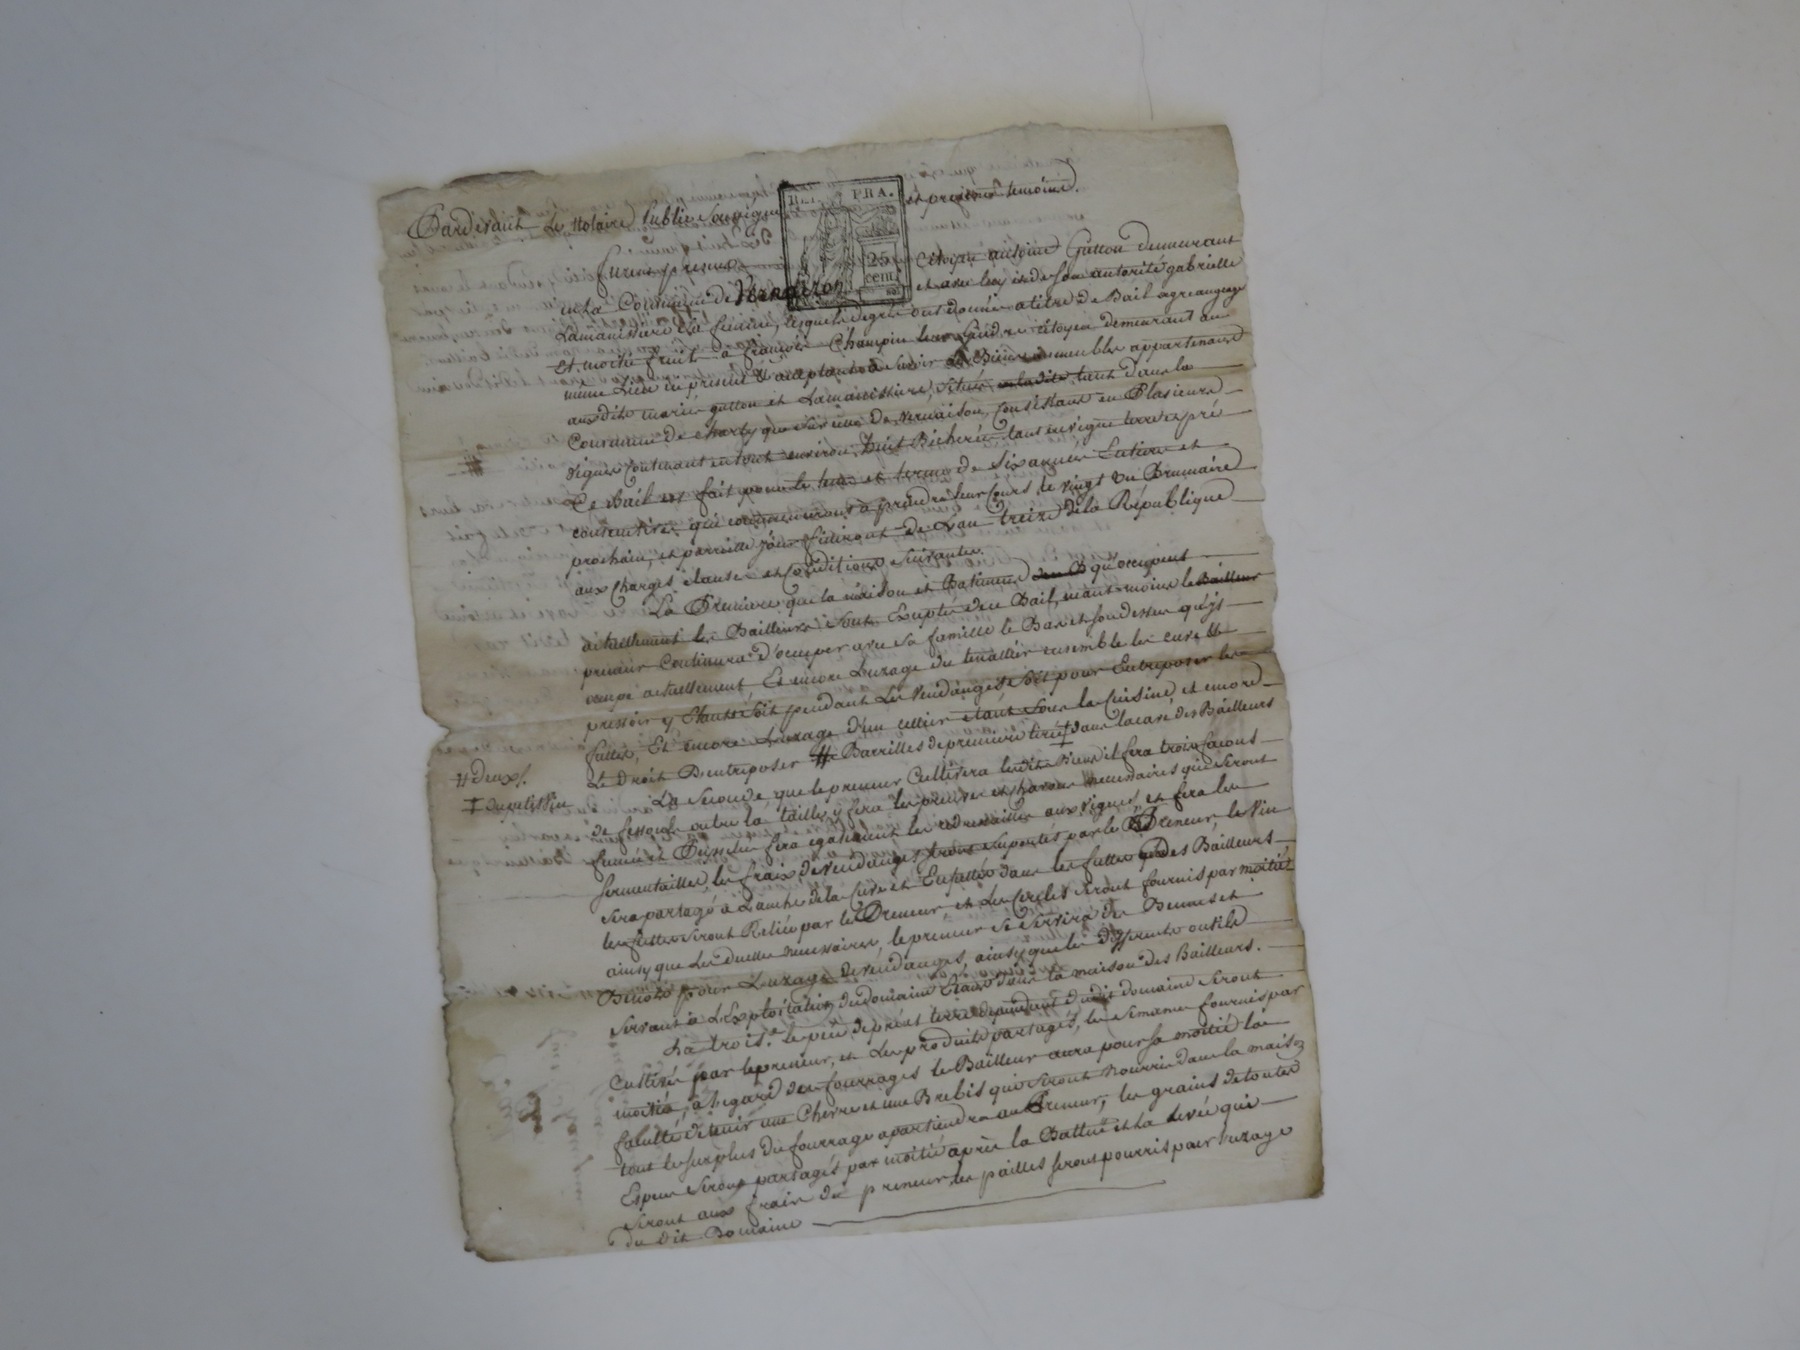 Pardevant Le Notaire Public Soussigné et presents temoins.
REP. FRA.
25
cent.
furent presents citoyen antoine Gutton demeurant
en la Commune de Vernaizon et avec luy et de son autorité gabrielle
Lamanissiere sa femme, lesquels degré ont donné a titre de Bail agreangeage
et moitié fruit a françois Champin leur Gendre citoyen demeurant au
même Lieu cy present & acceptant a Savoir Biens immeubles appartenant
aux dits mariés gutton et Lamanissiere, situés tant dans la
Commune de Charly que sur celle de vernaison, Consistant en Plusieurs
vignes Contenant en tout environ huit Bicherées tant en vigne terre et pré
Ce Bail est fait pour le tems et terme de Six années Entiere et
consecutives qui commenceront à prendre leur Cours le vingt un Brumaire
prochain, et parreille jour finiront de L'an treize de la République
aux Charges clauses et conditions suivantes.
La Premiere que la maison et Batiment qu'occupent
actuellement les Bailleurs sont Exeptés du Bail, neant moins le
preneur Continuera d'occuper avec Sa famille le Bas et son dessus qu'ils
occupe actuellement, Et encore L'uzage du tenallier ensemble les cuves &
pressoir y Etant soit pendant Les Vendanges soit pour Entreposer les
futtes, Et encore L'uzage d'un cellier etant sous la Cuisine, et encore
Le Droit D'entreposer # Barrilles de premiere tirée ‡ dans la cave des Bailleurs
# deux f.
‡ du petit vin
La Seconde, que le preneur Cultivera lesdits Biens il fera trois façons
de fessoule outre la taille, y fera les preuves et necessaires qui seront
fumés et fera egalement les aux vignes et fera les
sermentailles, les fraix de vendanges supportés par le Preneur, le Vin
Sera partagé a L'anche de la Cuve et Enfutté dans les futtes des Bailleurs
les futtes seront Reliés par le Preneur et Les Cercles seront fournis par moitié
ainsy que Les duelles necessaires, le preneur se servira des Bennes et
Bennots pour L'uzage de vendanges, ainsy que les differents outils
servant à L'exploitation du domaine Etant dans la maison des Bailleurs.
La trois.e le peu de prés et terre dependant dudit domaine seront
Cultivés par le preneur, et Les produits partagés, les semences fournis par
moitié, à l'egard des fourrages le Bailleur aura pour sa moitié la
faculté de tenir une Chevre et une Brebis qui seront nourris dans la maison
tout le surplus du fourrage apartiendra au Preneur, les grains de toutes
Especes seront partagés par moitié après la Battue et La levée qui
seront aux fraix du preneur, les pailles seront pourris pour l'uzage
du dit Domaine